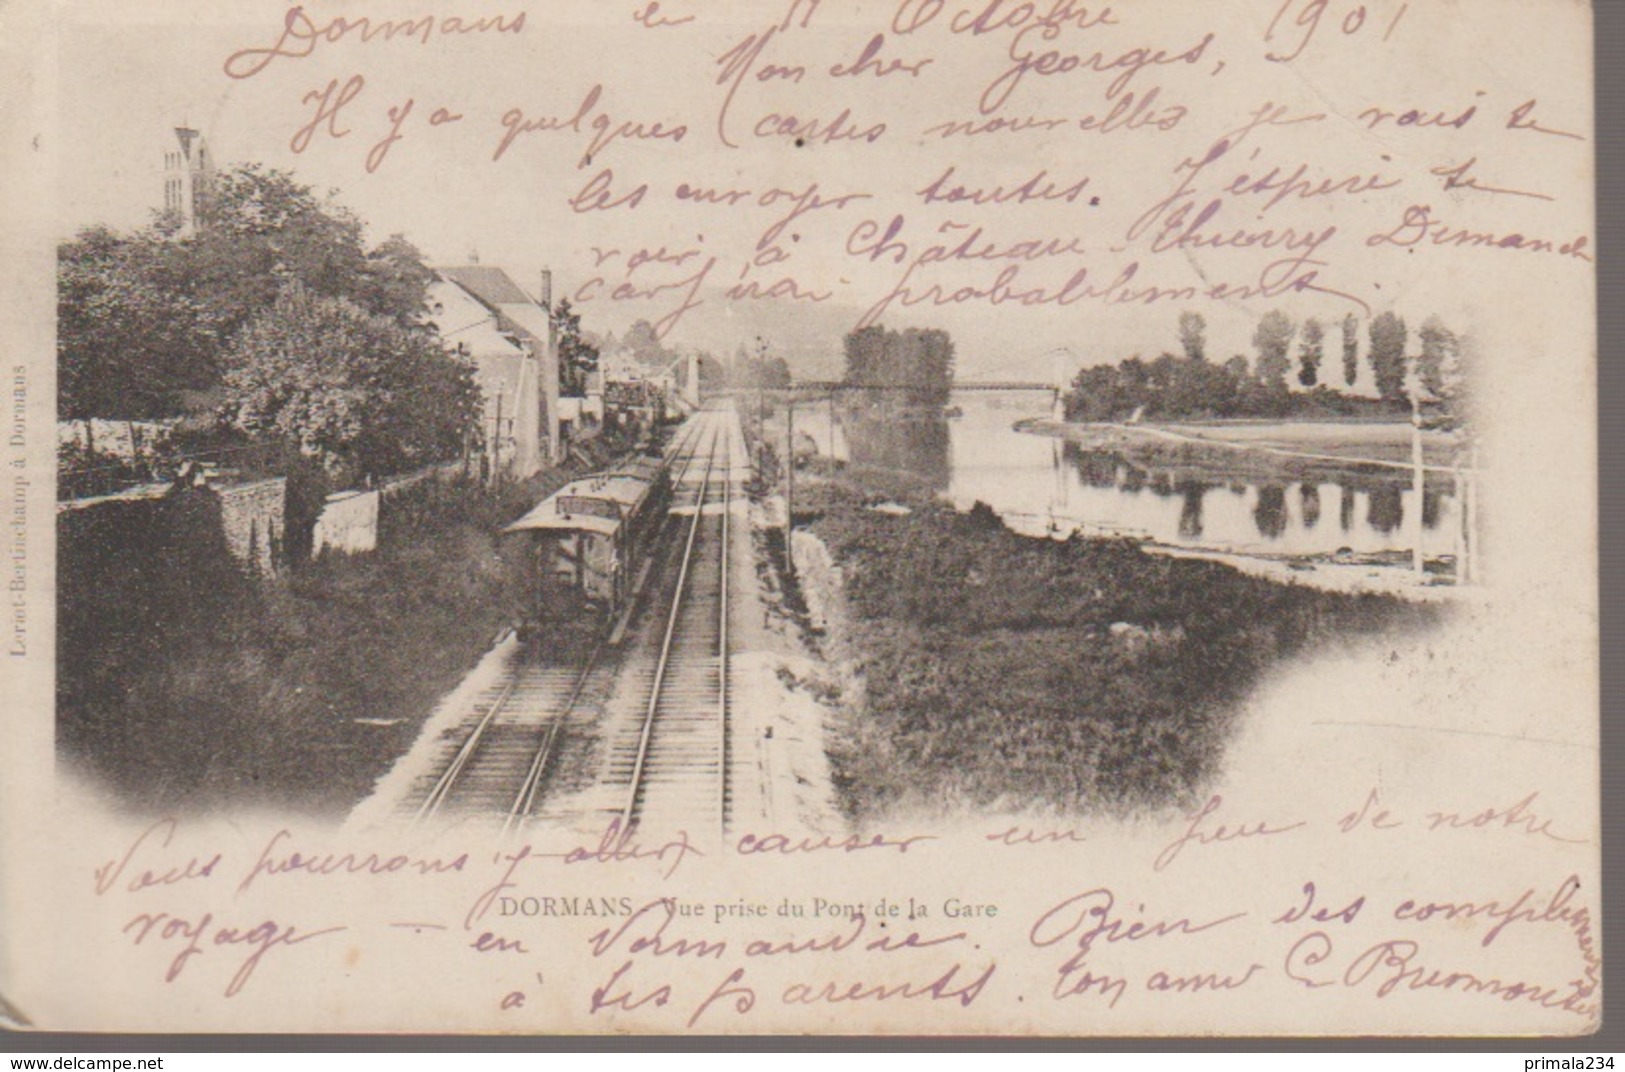 Dormans le 11 Octobre 1901
Mon cher Georges,
Il y a quelques cartes nouvelles je vais te
les envoyer toutes. J'éspère te
voir à Château Thierry Dimanch
car j'irai probablement.
Loriot-Bertinchamp à Dormans
Vous pourrons y aller causer un peu de notre
DORMANS Vue prise du Pont de la Gare
voyage - en Normandie. Bien des compliments
à tes parents. ton ami
primala234